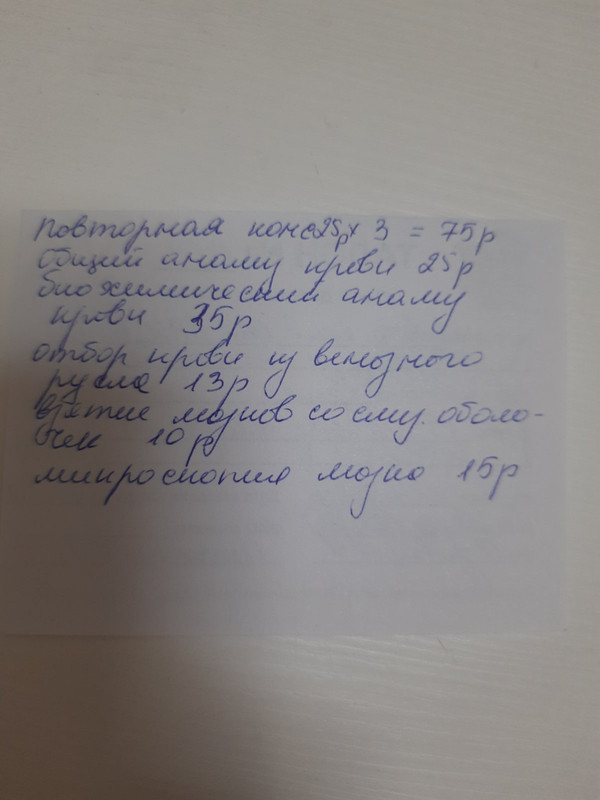 повторная конс 25р х 3 = 75р
Общий анализ крови 25р
биохимический анализ
крови 35р
отбор крови из венозного
русла 13р
взятие мазков со слиз. оболо-
чек 10р
микроскопия мазка 15р